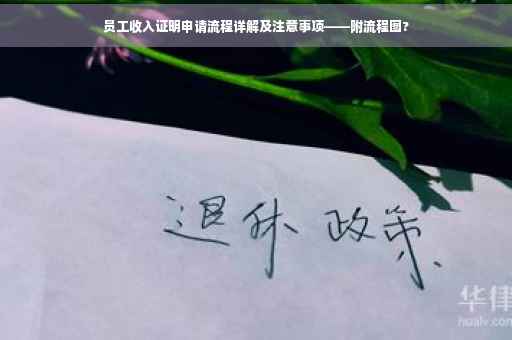 员工收入证明申请流程详解及注意事项——附流程图?
退休 政策
华律
hualv.com